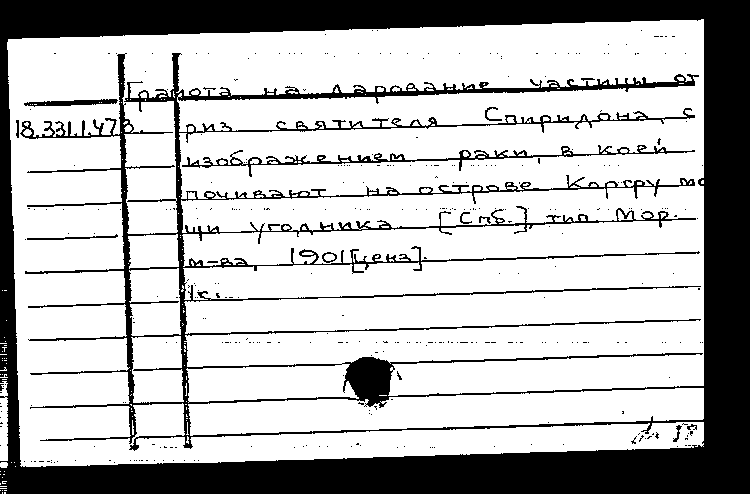 Грамота на дарование частицы от
18.331.1.473. риз святителя Спиридона, с
изображением раки, в коей
почивают на острове Корфу мо
щи угодника. [Спб.], тип. Мор.
м-ва, 1901 [ценз].
1с.